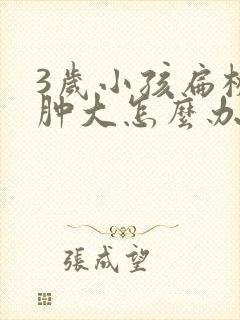 3歲小孩扁桃
肿大怎麼办
張成望